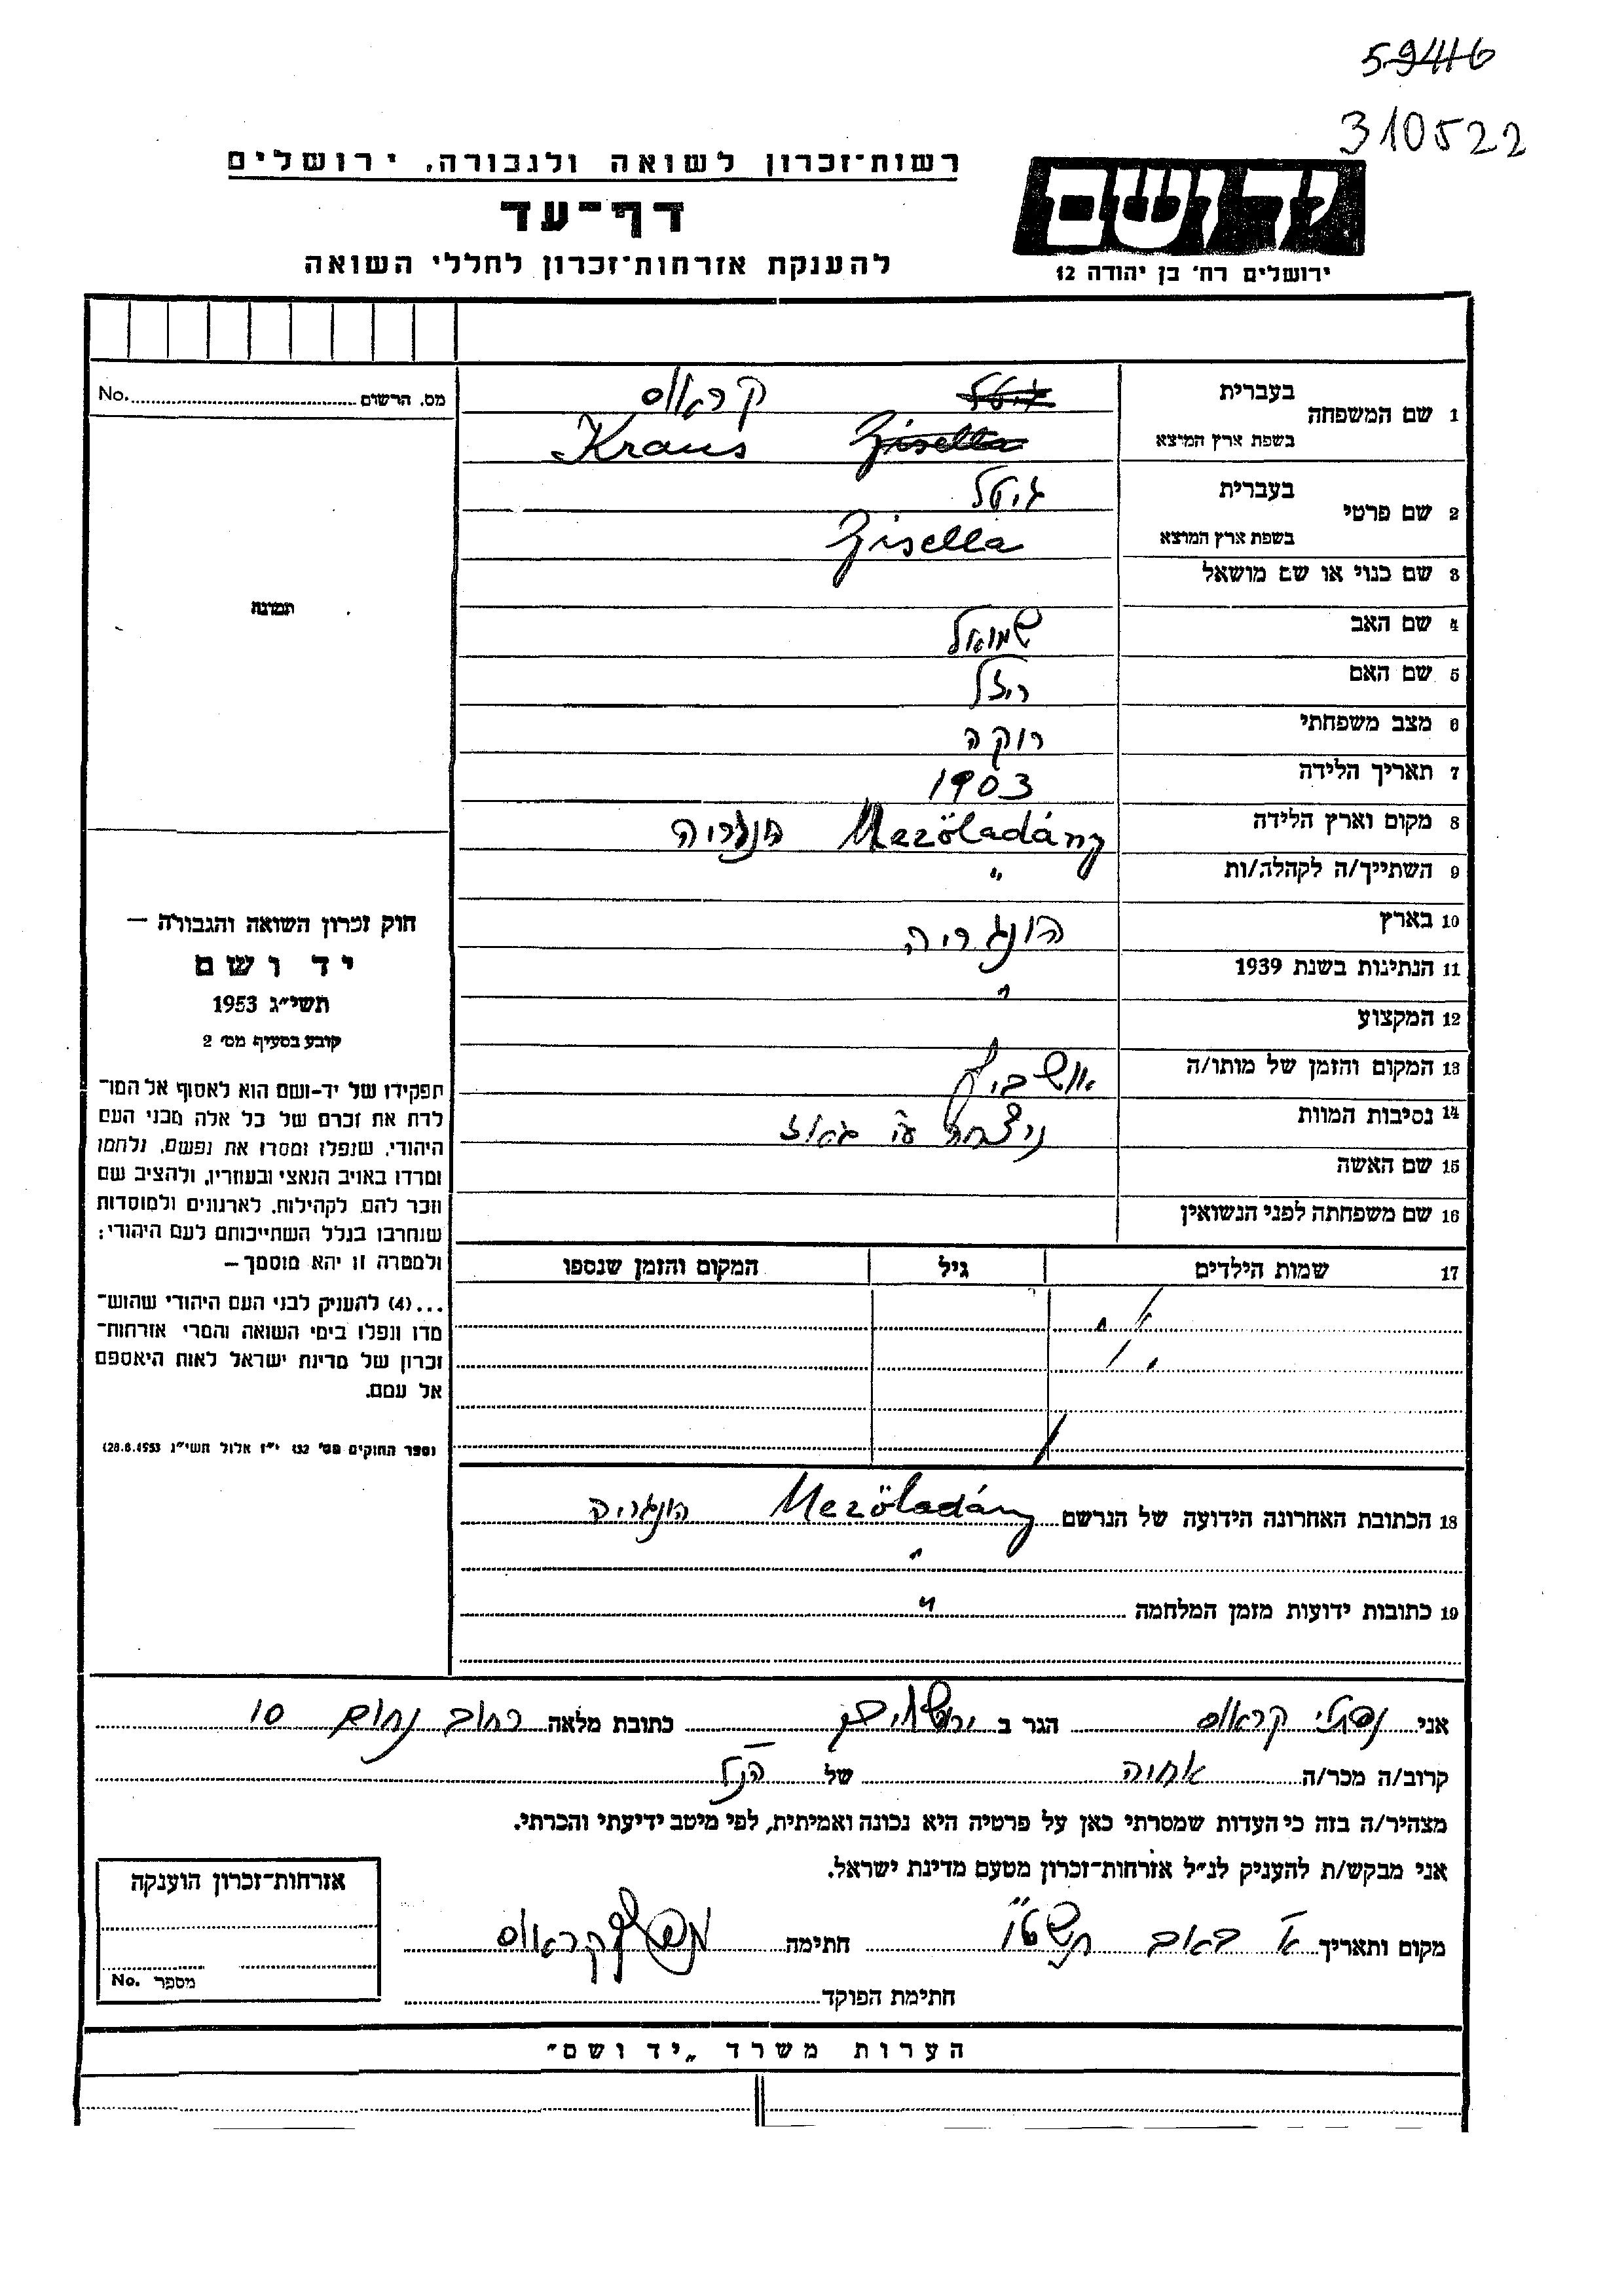 59416
310522
רשות־זכרון לשואה ולגבורה, ירושלים
דף־עד
להענקת אזרחות־זכרון לחללי השואה
יד ושם
ירושלים רח' בן יהודה 12
מס. הרשום No.
1 שם המשפחה
בעברית גיטל קראוס
בשפת ארץ המוצא Gisella Kraus
2 שם פרטי
בעברית גיטל
בשפת ארץ המוצא Gisella
3 שם כנוי או שם מושאל
4 שם האב שמואל
5 שם האם רייזל
6 מצב משפחתי רוקה
7 תאריך הלידה 1903
8 מקום וארץ הלידה Mezöladány הונגריה
9 השתייך/ה לקהלה/ות "
10 בארץ הונגריה
11 הנתינות בשנת 1939 "
12 המקצוע
13 המקום והזמן של מותו/ה אושביץ
14 נסיבות המוות
15 שם האשה
16 שם משפחתה לפני הנשואין
17 שמות הילדים גיל המקום והזמן שנספו
18 הכתובת האחרונה הידועה של הנרשם Mezöladány הונגריה
"
19 כתובות ידועות מזמן המלחמה "
תמונה
חוק זכרון השואה והגבורה –
יד ושם
תשי"ג 1953
קובע בסעיף מס' 2
תפקידו של יד-ושם הוא לאסוף אל המו־
לדת את זכרם של כל אלה מבני העם
היהודי, שנפלו ומסרו את נפשם, נלחמו
ומרדו באויב הנאצי ובעוזריו, ולהציב שם
וזכר להם, לקהילות, לארגונים ולמוסדות
שנחרבו בגלל השתייכותם לעם היהודי;
ולמטרה זו יהא מוסמך –
...(4) להעניק לבני העם היהודי שהוש־
מדו ונפלו בימי השואה והמרי אזרחות־
זכרון של מדינת ישראל לאות היאספם
אל עמם.
(ספר החוקים מס' 132 י"ז אלול תשי"ג 28.8.1953)
אני נפתלי קראוס הגר ב ירושלים כתובת מלאה רחוב נחום 10
קרוב/ה מכר/ה אחיה של הנ"ל
מצהיר/ה בזה כי העדות שמסרתי כאן על פרטיה היא נכונה ואמיתית, לפי מיטב ידיעתי והכרתי.
אני מבקש/ת להעניק לנ"ל אזרחות־זכרון מטעם מדינת ישראל.
מקום ותאריך א' באב תשט"ו חתימה נפתלי קראוס
חתימת הפוקד
אזרחות־זכרון הוענקה
מספר No.
הערות משרד „יד ושם"